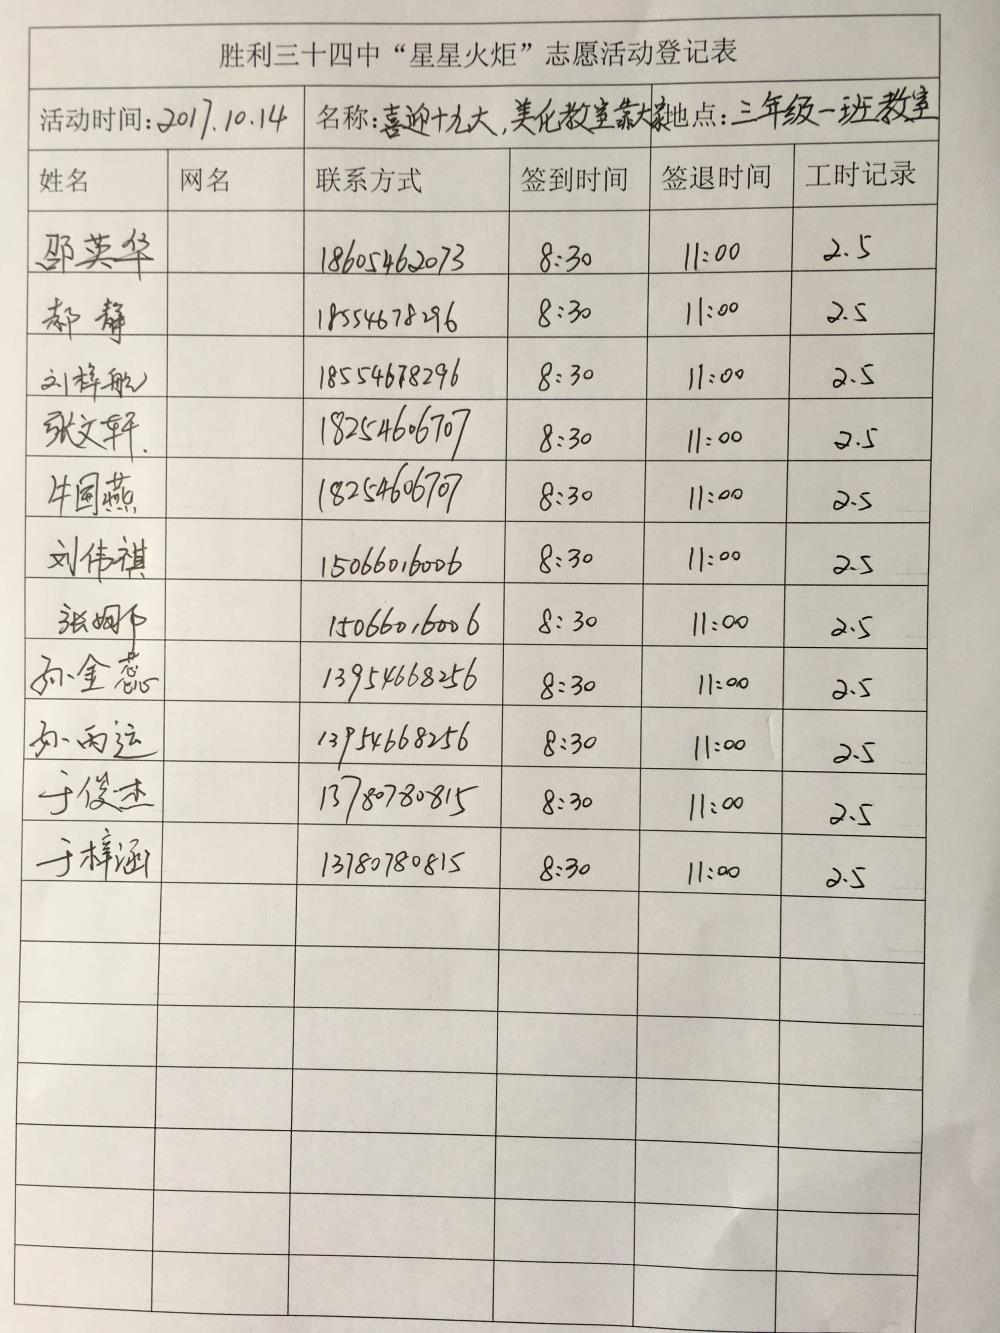 胜利三十四中“星星火炬”志愿活动登记表
活动时间:2017.10.14 名称:喜迎十九大,美化教室靠大家 地点:三年级一班教室
姓名 网名 联系方式 签到时间 签退时间 工时记录
邵英华 18605462073 8:30 11:00 2.5
郝静 18554678296 8:30 11:00 2.5
刘梓航 18554678296 8:30 11:00 2.5
张文轩. 18254606707 8:30 11:00 2.5
牛国燕 18254606707 8:30 11:00 2.5
刘伟祺 15066016006 8:30 11:00 2.5
张娜 15066016006 8:30 11:00 2.5
孙金蕊 13954668256 8:30 11:00 2.5
孙丙运 13954668256 8:30 11:00 2.5
于俊杰 13780780815 8:30 11:00 2.5
于梓涵 13780780815 8:30 11:00 2.5